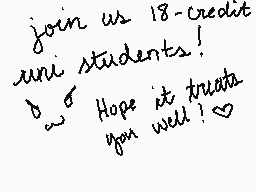 join us 18-credit
uni students!
Hope it treats
you well! ♡